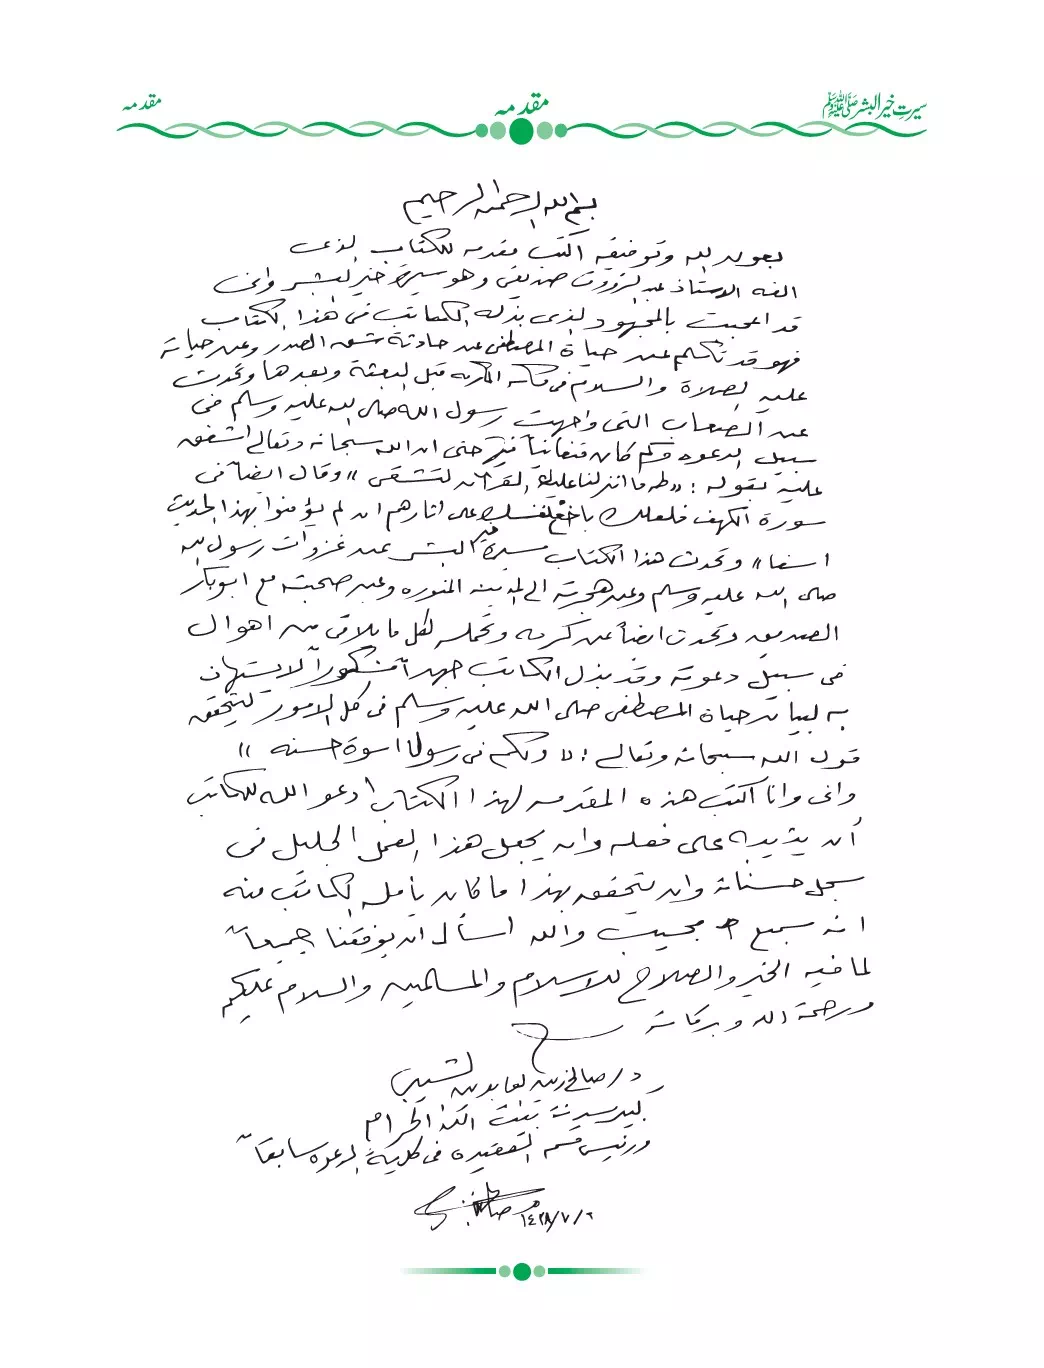 سیرتِ خیر البشر ﷺ
مقدمہ
مقدمہ
بسم الله الرحمن الرحيم
بعون الله وتوفيقه اكتب مقدمه للكتاب الذى
الفه الاستاذ عبد الرؤوف صديقى وهو سيرة خير البشر وانى
قد اعجبت بالمجهود الذى بذله الكاتب فى هذا الكتاب
فهو قد تكلم عن حياة المصطفى عن حادثة شق الصدر وعن حياته
عليه الصلاة والسلام فى مكه المكرمه قبل البعثة وبعدها وتحدث
عن الصعاب التى واجهت رسول الله صلى الله عليه وسلم فى
سبيل الدعوه وكم كان متفانياً حتى ان الله سبحانه وتعالى اشفق
عليه بقوله : «طه ما انزلنا عليك القرآن لتشقى» وقال ايضاً فى
سورة الكهف فلعلك باخع نفسك على اثارهم ان لم يؤمنوا بهذا الحديث
اسفا» وتحدث هذا الكتاب سيرة خير البشر عن غزوات رسول الله
صلى الله عليه وسلم وعن هجرته الى المدينه المنوره وعن صحبته مع ابوبكر
الصديق وتحدث ايضاً عن كرمه وتحمله لكل ما يلاقى من اهوال
فى سبيل دعوته وقد بذل الكاتب جهداً مشكوراً لا يستهان
به لبيان حياة المصطفى صلى الله عليه وسلم فى كل الامور ليتحقق
قول الله سبحانه وتعالى : ولكم فى رسول اسوة حسنه »
وانى وانا اكتب هذه المقدمه لهذا الكتاب ادعو الله للكاتب
أن يثيبه على فعله وان يجعل هذا العمل الجليل فى
سجل حسناته وان يتحقق بهذا ما كان يأمله الكاتب منه
انه سميع مجيب والله اسأل ان يوفقنا جميعاً
لما فيه الخير والصلاح للاسلام والمسلمين والسلام عليكم
ورحمة الله وبركاته
د/ صالح زين العابدين الشيبى
كبير سدنة بيت الله الحرام
ورئيس قسم العقيده فى كلية الدعوه سابقاً
١٤٣٨/٧/٢